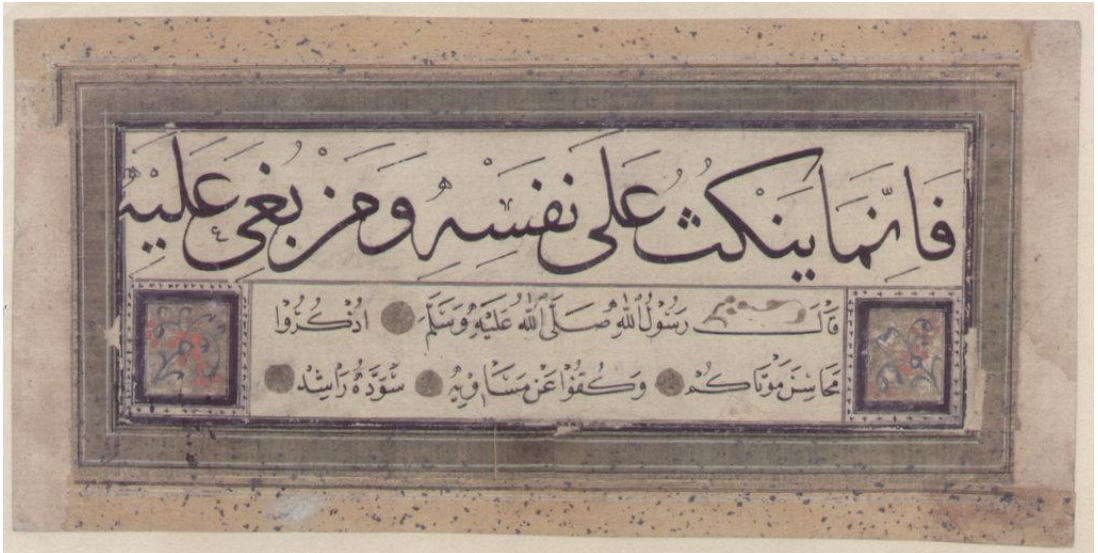 فَاِنَّمَا يَنْكُثُ عَلَى نَفْسِهِ وَمَنْ بُغِىَ عَلَيْهِ
قَالَ رَسُوْلُ اللهِ صَلَّى اللهُ عَلَيْهِ وَسَلَّمَ اذْكُرُوْا
مَحَاسِنَ مَوْتَاكُمْ وَكُفُّوْا عَنْ مَسَاوِيْهِ سَوَّدَهُ رَاشِدْ